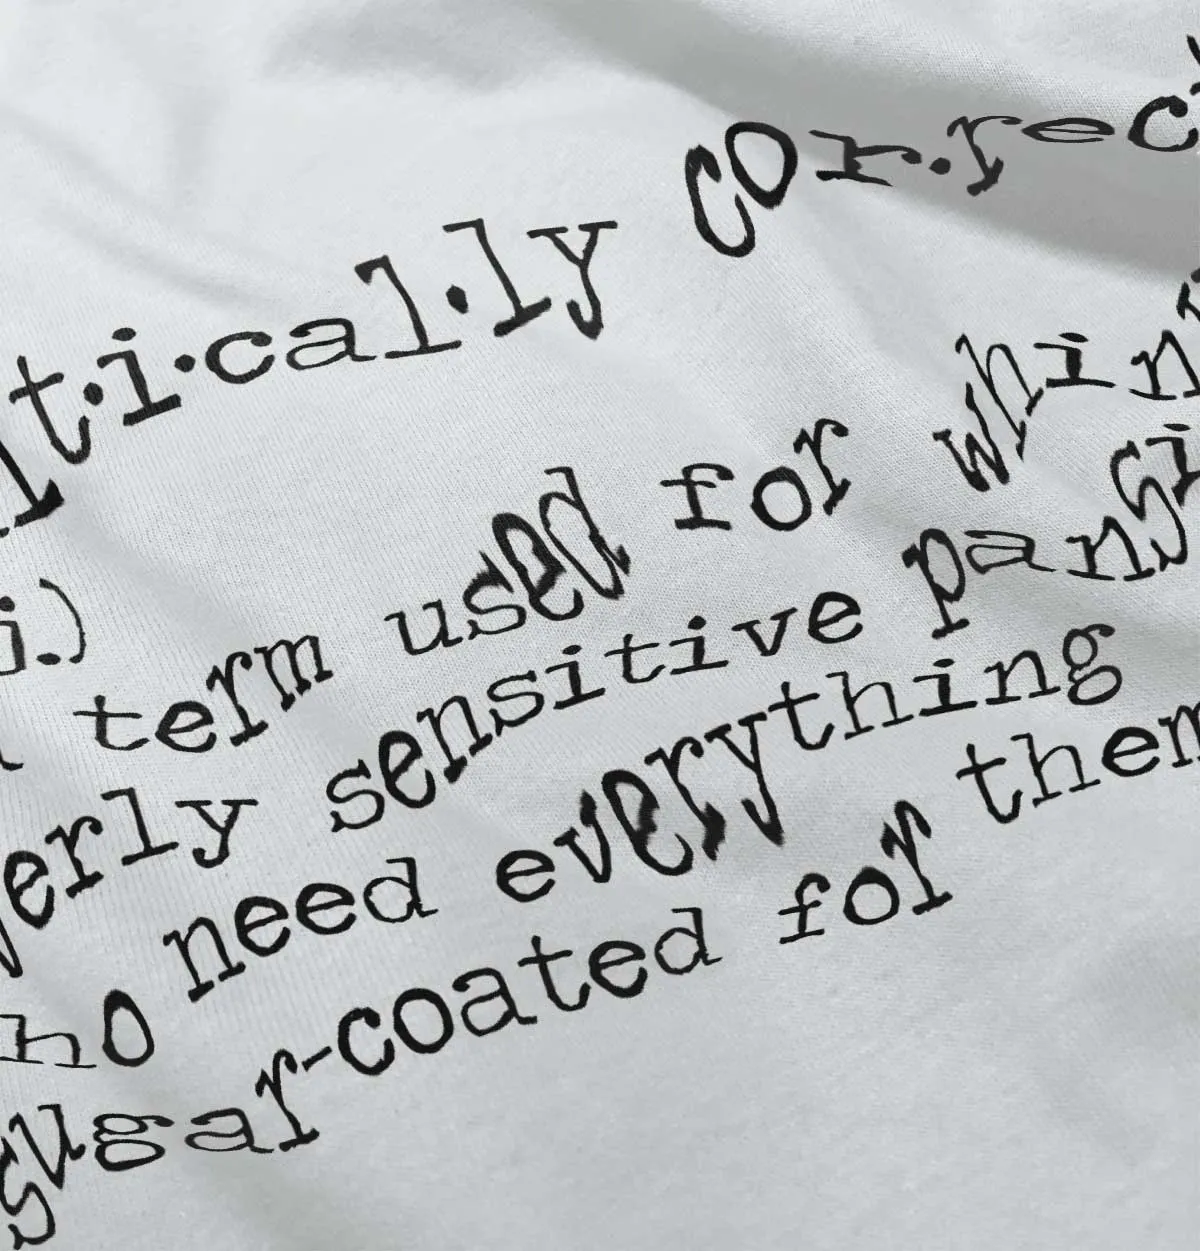 it·i·cal·ly cor·rect
j.)
term used for whin
verly sensitive pansi
ho need everything
sugar-coated for them